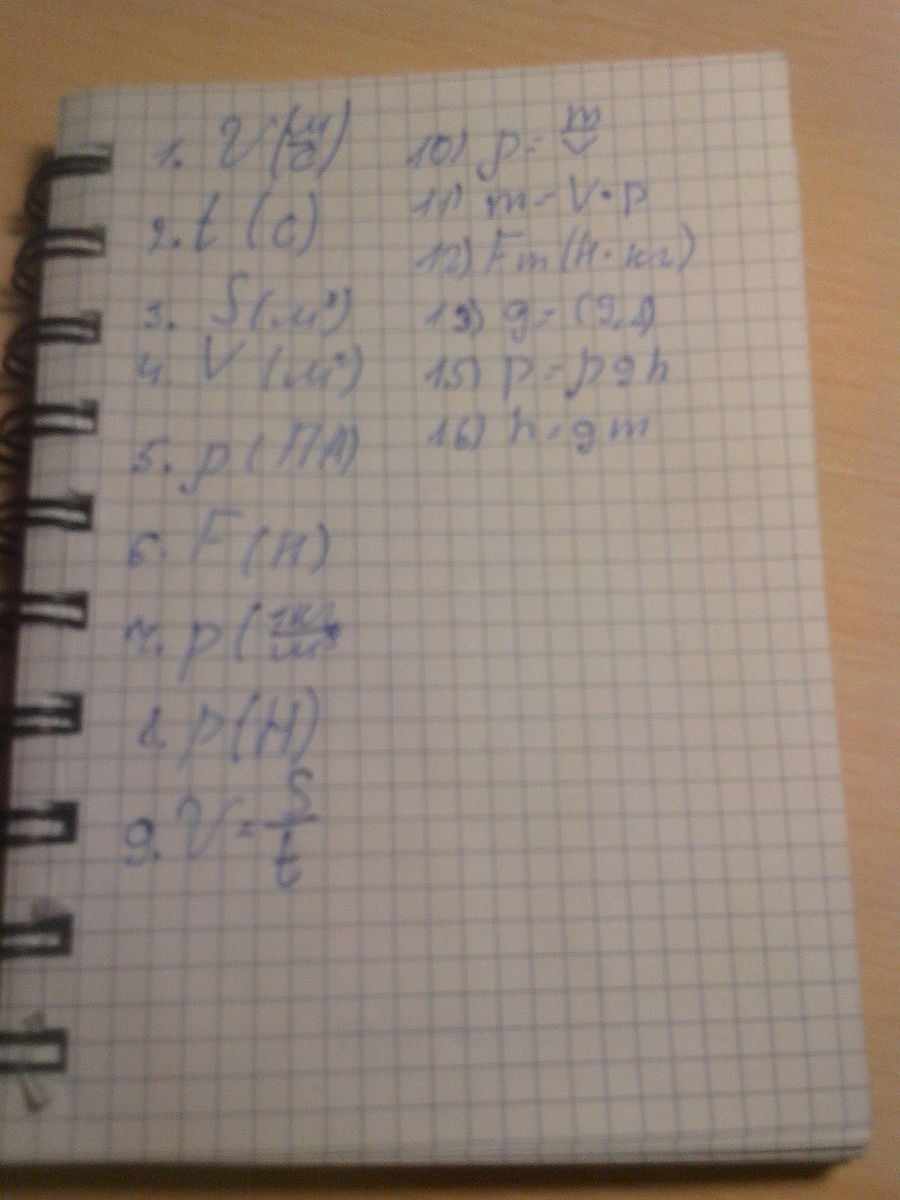 1. V (м/с)
2. t (с)
3. S (м³)
4. V (м³)
5. p (ПА)
6. F (Н)
7. p (1кг/м³
8. p (Н)
9. V = S/t
10) p = m/V
11) m = V · p
12) Fm (Н · кг)
13) g = (9,8)
15) p = pgh
16) h = gm